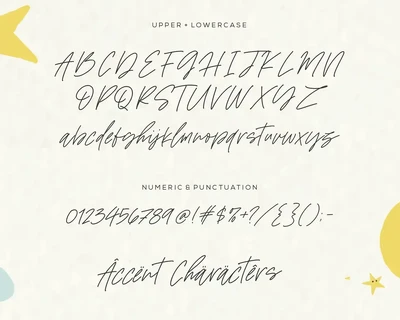 UPPER + LOWERCASE
ABCDEFGHIJKLMN
OPQRSTUVWXYZ
abcdefghijklmnopqrstuvwxyz
NUMERIC & PUNCTUATION
0123456789@!#$%+?/{}():-
Äccënt Chäräctërs